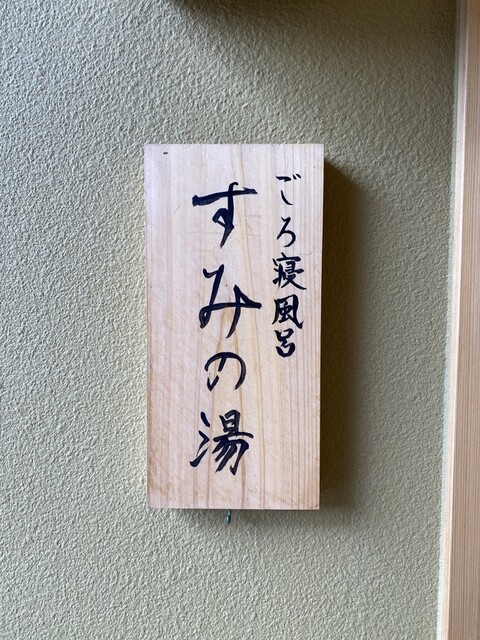 ごろ寝風呂
すみの湯